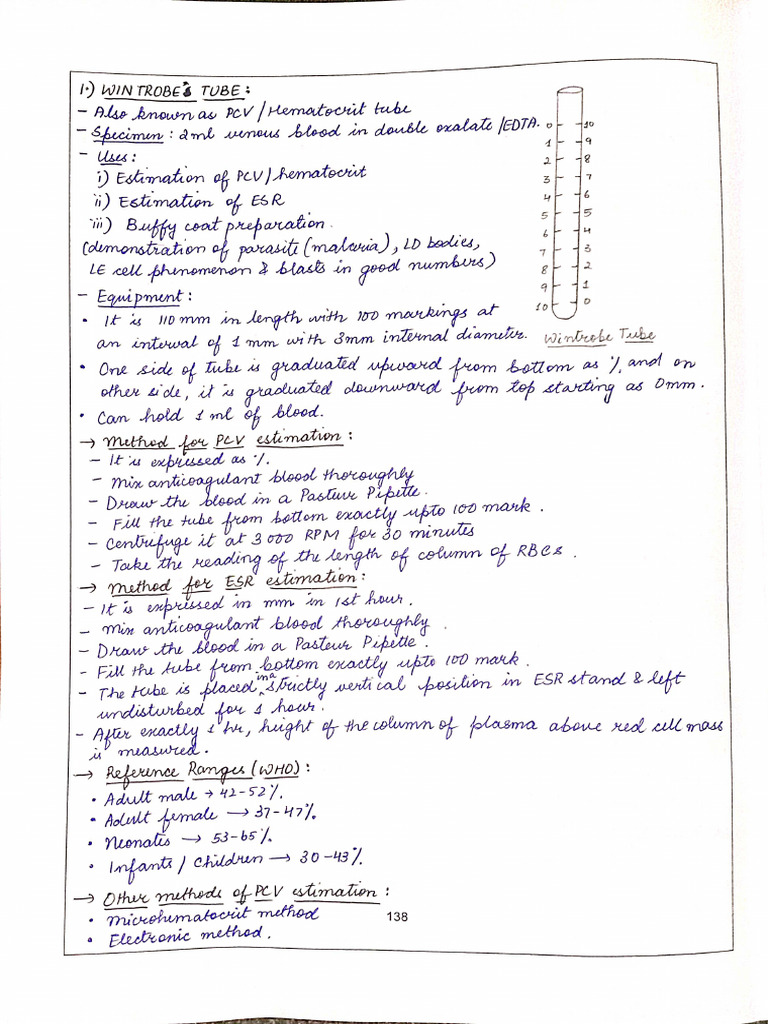 1.) WINTROBE'S TUBE :
- Also known as PCV / Hematocrit tube
- Specimen : 2ml venous blood in double oxalate /EDTA.
- Uses :
i) Estimation of PCV/hematocrit
ii) Estimation of ESR
iii) Buffy coat preparation.
(demonstration of parasite (malaria), LD bodies,
LE cell phenomenon & blasts in good numbers)
0 10
1 9
2 8
3 7
4 6
5 5
6 4
7 3
8 2
9 1
10 0
Wintrobe Tube
- Equipment :
• It is 110 mm in length with 100 markings at
an interval of 1 mm with 3mm internal diameter.
• One side of tube is graduated upward from bottom as %, and on
other side, it is graduated downward from top starting as 0mm.
• Can hold 1 ml of blood.
→ Method for PCV estimation :
- It is expressed as %.
- Mix anticoagulant blood thoroughly
- Draw the blood in a Pasteur Pipette.
- Fill the tube from bottom exactly upto 100 mark.
- Centrifuge it at 3000 RPM for 30 minutes
- Take the reading of the length of column of RBCs.
→ Method for ESR estimation :
- It is expressed in mm in 1st hour.
- Mix anticoagulant blood thoroughly.
- Draw the blood in a Pasteur Pipette.
- Fill the tube from bottom exactly upto 100 mark.
- The tube is placed in a strictly vertical position in ESR stand & left
undisturbed for 1 hour.
- After exactly 1 hr, height of the column of plasma above red cell mass
is measured.
→ Reference Ranges (WHO) :
• Adult male → 42-52%.
• Adult female → 37-47%.
• Neonates → 53-65%.
• Infants / Children → 30-43%.
→ Other methods of PCV estimation :
• Microhematocrit method
• Electronic method.
138